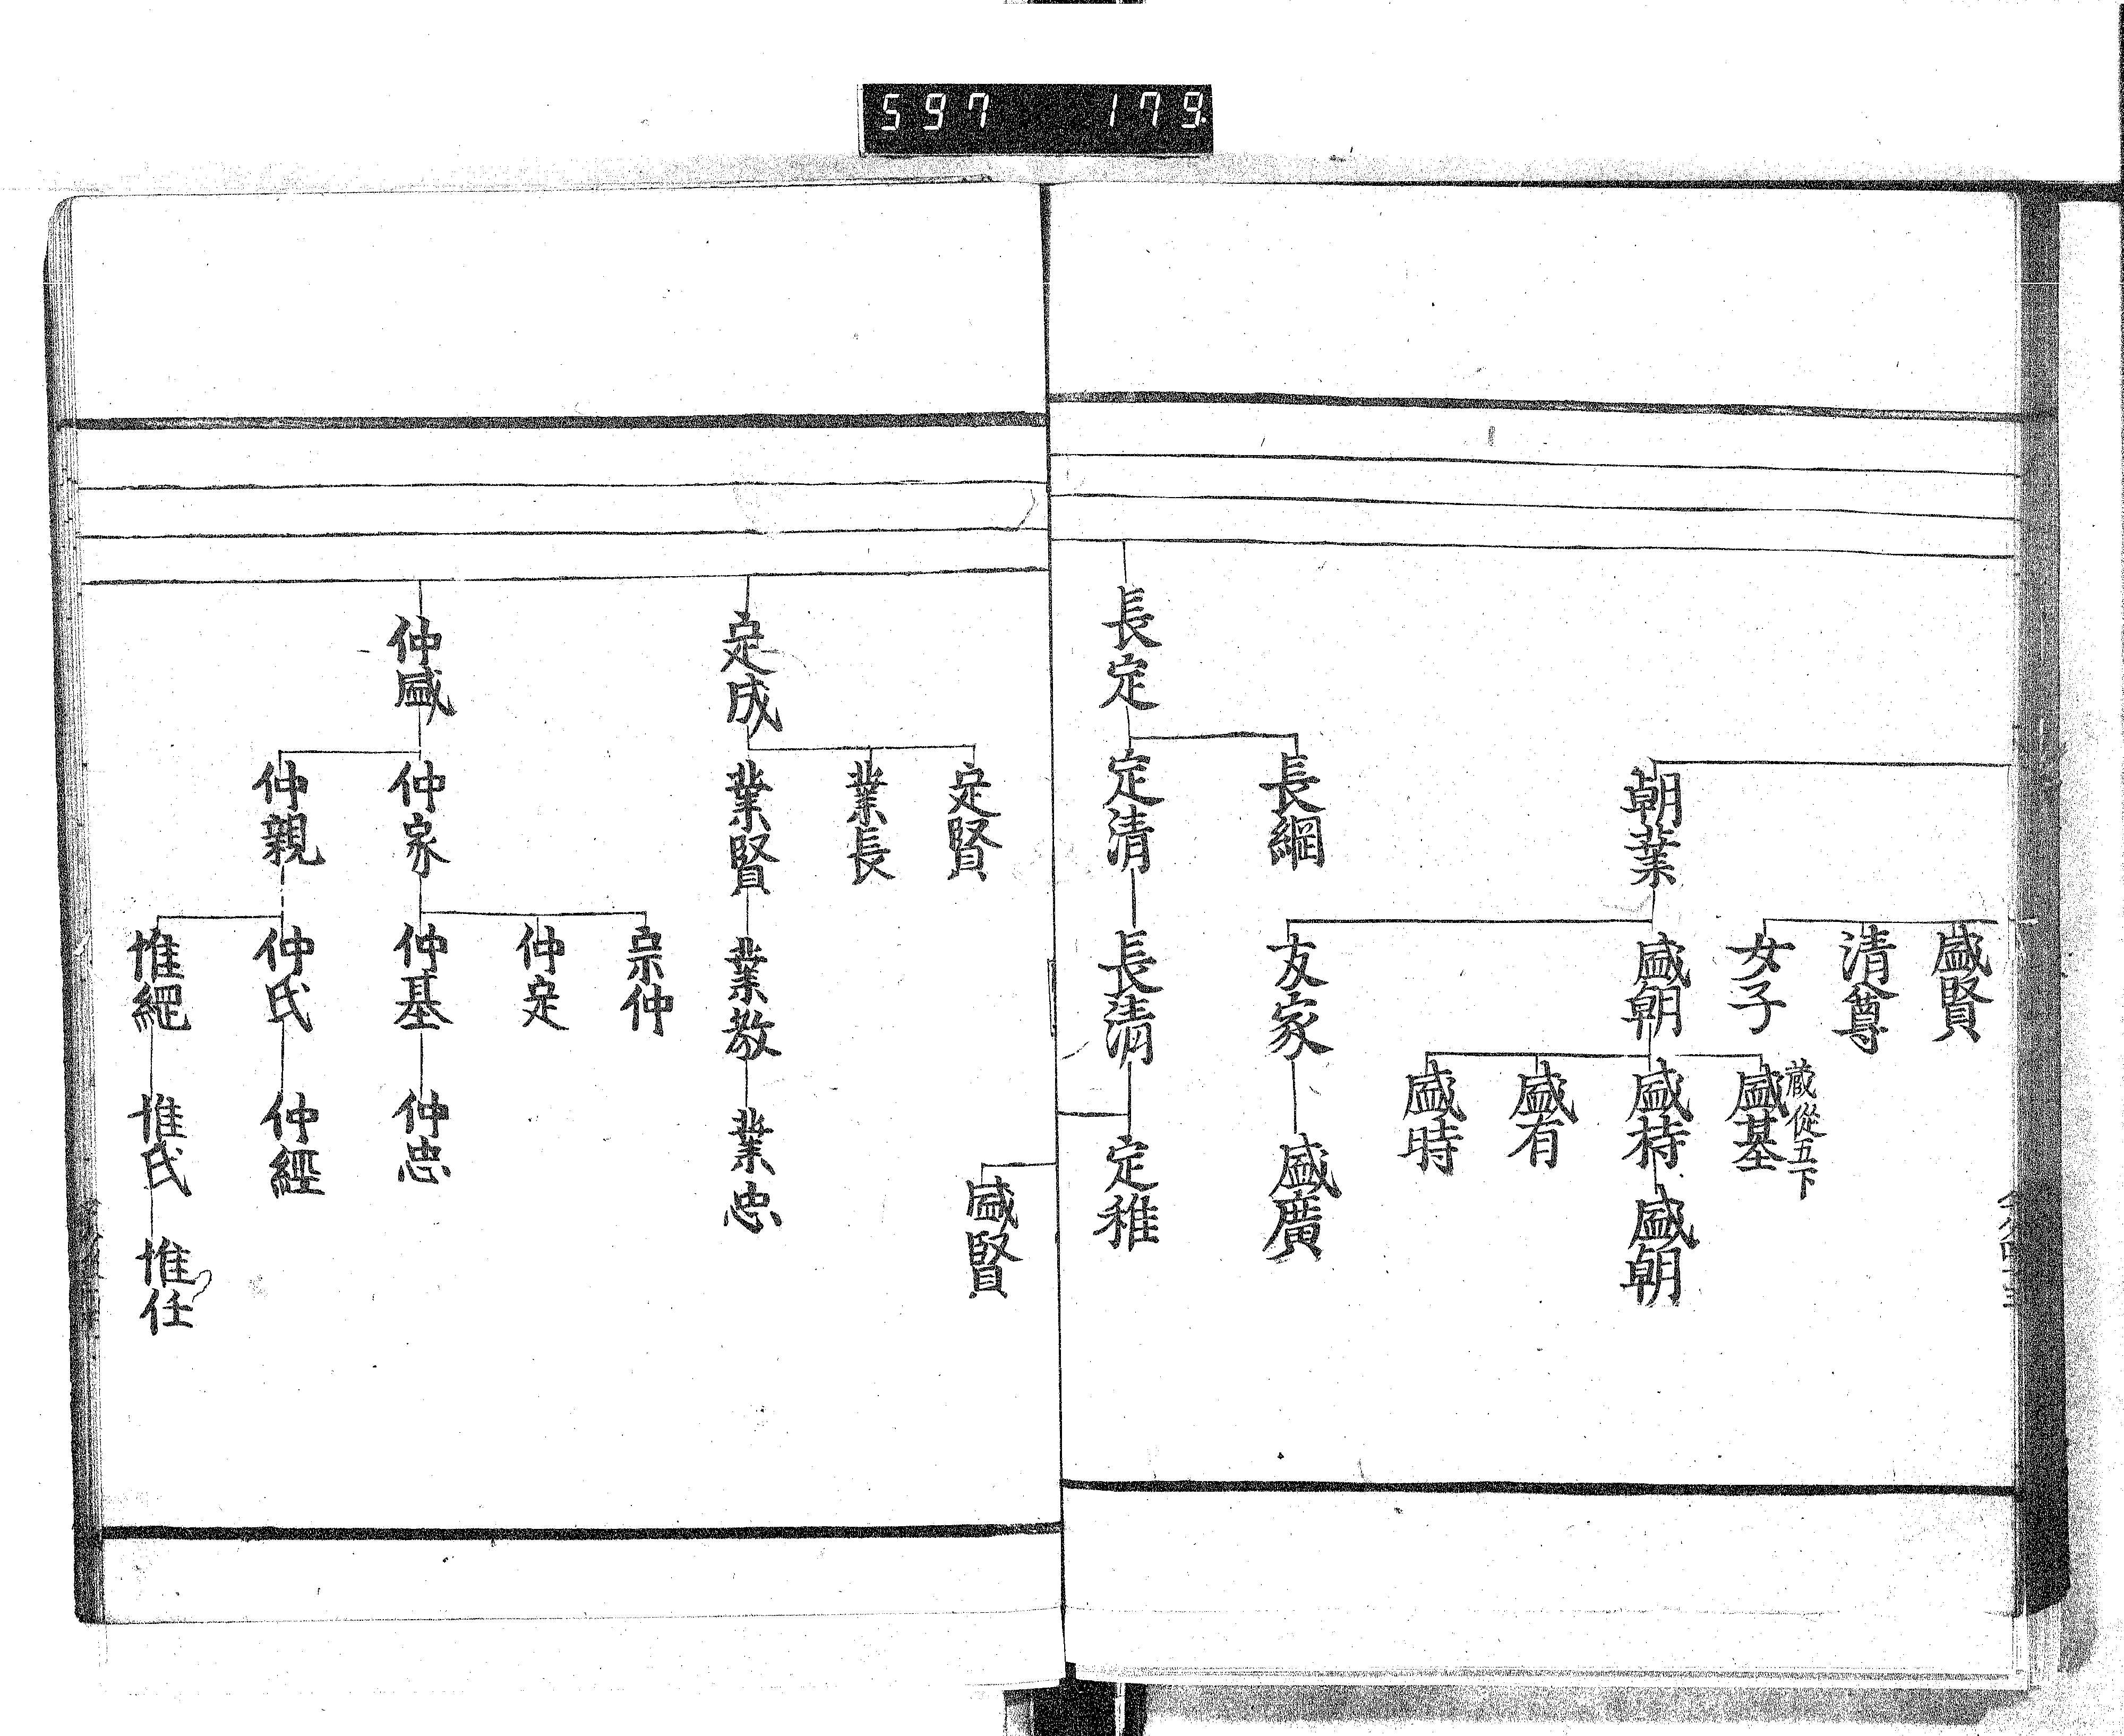 597 179
盛賢
清尊
女子
朝業
盛朝
盛基
蔵従五下
盛持
盛朝
盛有
盛時
友家
盛廣
長綱
長定
定清
長清
定稚
盛賢
定賢
業長
定成
業賢
業教
業忠
仲盛
仲家
宗仲
仲定
仲基
仲忠
仲親
仲氏
仲經
惟氏
惟任